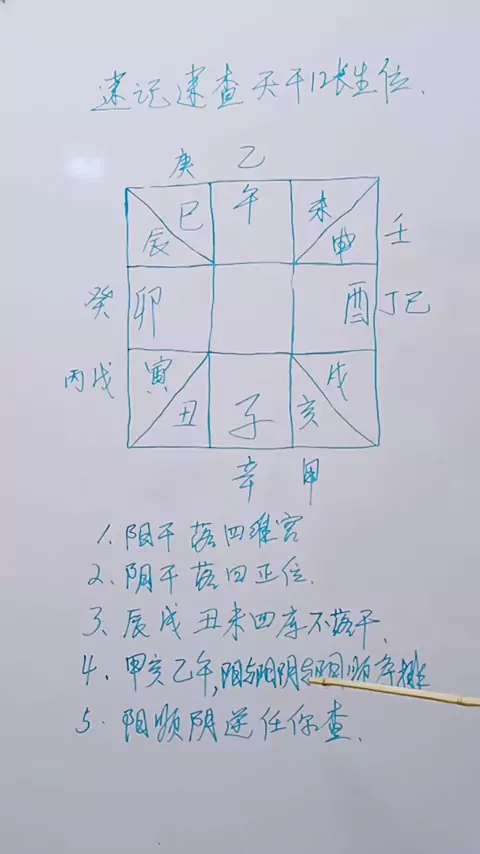 速记速查天干12长生位.
庚 乙
巳 午 未
辰 申 壬
癸 卯 酉 丁己
丙戊 寅 戌
丑 子 亥
辛 甲
1. 阳干落四维宫
2. 阴干落四正位.
3. 辰戌丑未四库不落干.
4. 甲亥乙午,阳与阳阴与阴顺序排
5. 阳顺阴逆任你查.